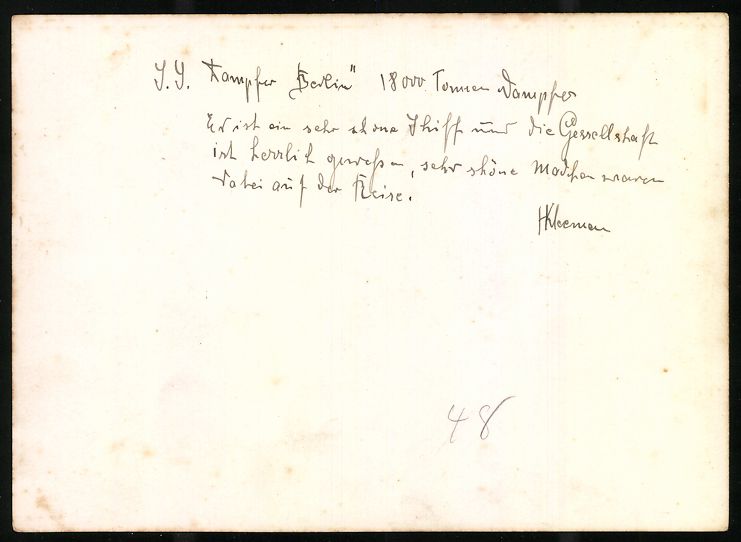 S.S. Dampfer „Berlin" 18000 Tonnen Dampfer
Er ist ein sehr shöne Shiff und die Gessellshaft
ist herrlich gewessen, sehr shöne Madchen waren
dabei auf der Reise.
HKleeman
48